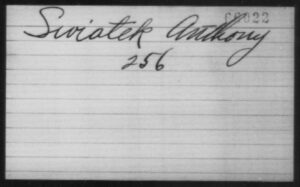 Swiatek Anthony
256